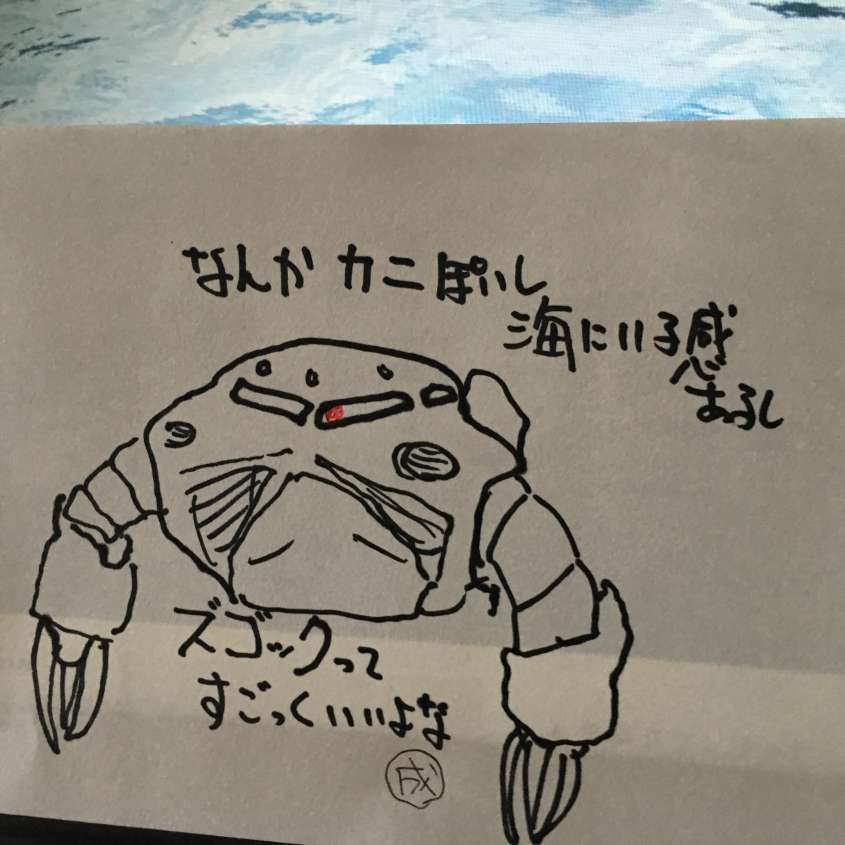 なんか カニぽいし
海にいる感
あるし
ズゴックって
すごっくいいよな
成